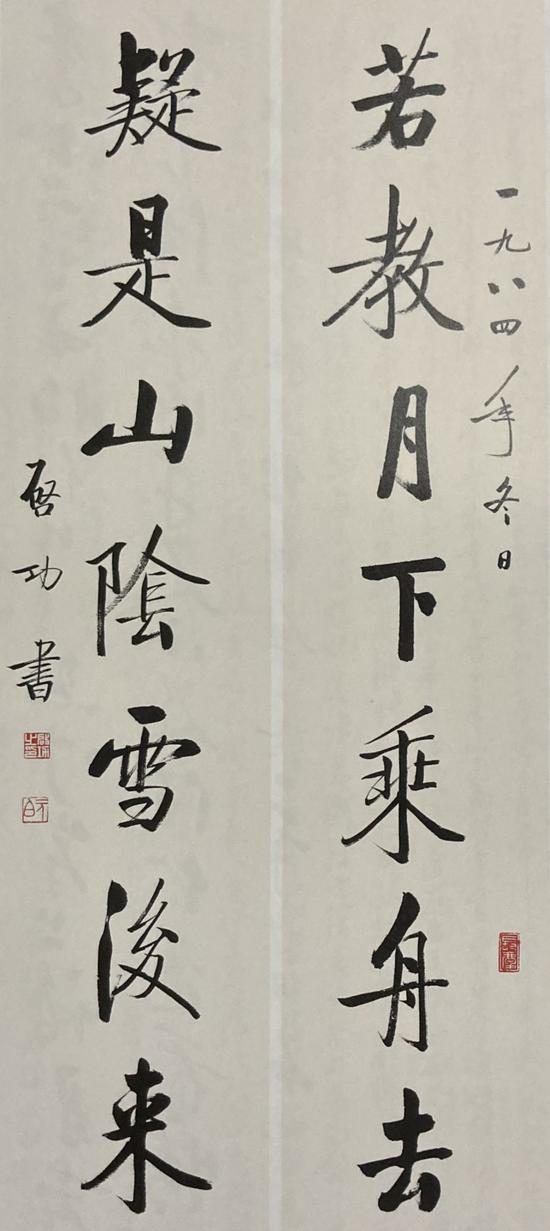 一九八四年冬日
若教月下乘舟去
疑是山陰雪後来
启功書